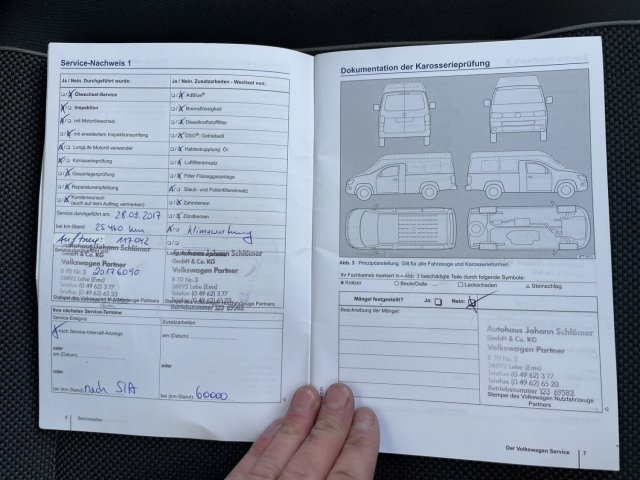 Service-Nachweis 1
Ja / Nein, Durchgeführt wurde:
Ölwechsel-Service
Inspektion
mit Motorölwechsel
mit erweitertem Inspektionsumfang
LongLife Motoröl verwendet
Karosserieprüfung
Gasanlagenprüfung
Reparaturempfehlung
Kundenwunsch
(auch auf dem Auftrag vermerken)
Service durchgeführt am: 28.03.2017
bei km-Stand: 25 460 km
Auftrag: 117042
Ja / Nein, Zusatzarbeiten - Wechsel von:
AdBlue®
Bremsflüssigkeit
Dieselkraftstofffilter
DSG®, Getriebeöl
Haldexkupplung: Öl
Luftfiltereinsatz
Filter Flüssiggasanlage
Staub- und Pollenfiltereinsatz
Zahnriemen
Zündkerzen
Klimawartung
Autohaus Johann Schlömer
GmbH & Co. KG
Volkswagen Partner
II 70 Nr. 3 20176090
26892 Lehe (Ems)
Telefon (0 49 62) 3 77
Telefax (0 49 62) 65 23
Stempel des Volkswagen Nutzfahrzeuge Partners
Betriebsnummer 123 69582
Ihre nächsten Service-Termine
Service-Ereignis
nach Service-Intervall-Anzeige
oder
am (Datum)
oder
bei (km-Stand) nach SIA
Zusatzarbeiten
am (Datum)
oder
bei (km-Stand): 60000
6 Serviceplan
Dokumentation der Karosserieprüfung
Abb. 3 Prinzipdarstellung. Gilt für alle Fahrzeuge und Karosserieformen.
Ihr Fachbetrieb markiert in ⇒ Abb. 3 beschädigte Teile durch folgende Symbole:
x Kratzer ○ Beule/Delle □ Lackschaden △ Steinschlag
Mängel festgestellt? Ja: Nein:
Beschreibung der Mängel:
Autohaus Johann Schlömer
GmbH & Co. KG
Volkswagen Partner
II 70 Nr. 3
26892 Lehe (Ems)
Telefon (0 49 62) 3 77
Telefax (0 49 62) 65 23
Betriebsnummer 123 69582
Stempel des Volkswagen Nutzfahrzeuge
Partners
Der Volkswagen Service 7